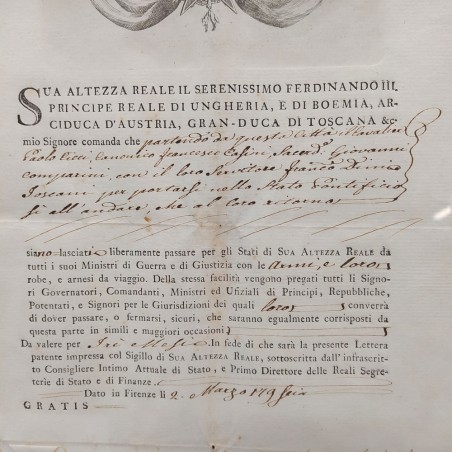 SUA ALTEZZA REALE IL SERENISSIMO FERDINANDO III.
PRINCIPE REALE DI UNGHERIA, E DI BOEMIA, AR-
CIDUCA D'AUSTRIA, GRAN-DUCA DI TOSCANA &c.
mio Signore comanda che partendo da questa Città
Paolo Canonico Francesco Casini Sacerd. Giovanni
Comparini, con il loro Servitore Franco
Toscani per portarsi nello Stato Pontificio
si all'andare, che al loro ritorno
siano lasciati liberamente passare per gli Stati di SUA ALTEZZA REALE da
tutti i suoi Ministri di Guerra e di Giustizia con le armi, e loro
robe, e arnesi da viaggio. Della stessa facilità vengono pregati tutti li Si-
gnori Governatori, Comandanti, Ministri ed Ufiziali di Principi, Repubbliche,
Potentati, e Signori per le Giurisdizioni dei quali loro converrà
di dover passare, o fermarsi, sicuri, che saranno egualmente corrisposti da
questa parte in simili e maggiori occasioni
Da valere per Tre Mesi In fede di che sarà la presente Lettera
patente impressa col Sigillo di SUA ALTEZZA REALE, sottoscritta dall'infrascrit-
to Consigliere Intimo Attuale di Stato, e Primo Direttore delle Reali Segre-
terie di Stato e di Finanze.
Dato in Firenze li 2. Marzo 179 Seia
GRATIS